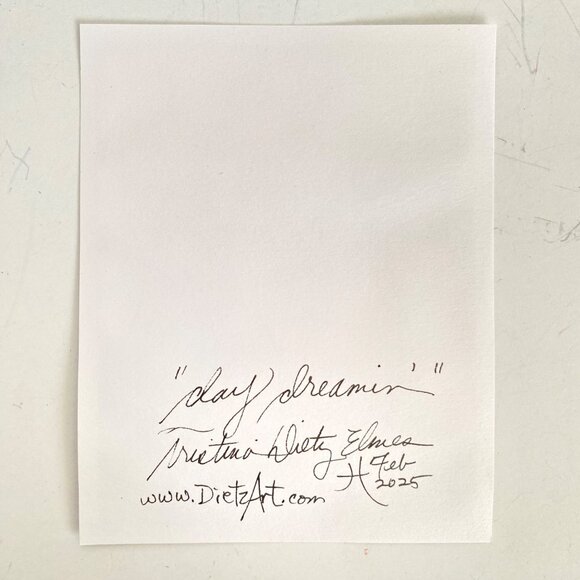 "day dreamin'"
Tristina Dietz Elmes
Feb
2025
www.DietzArt.com